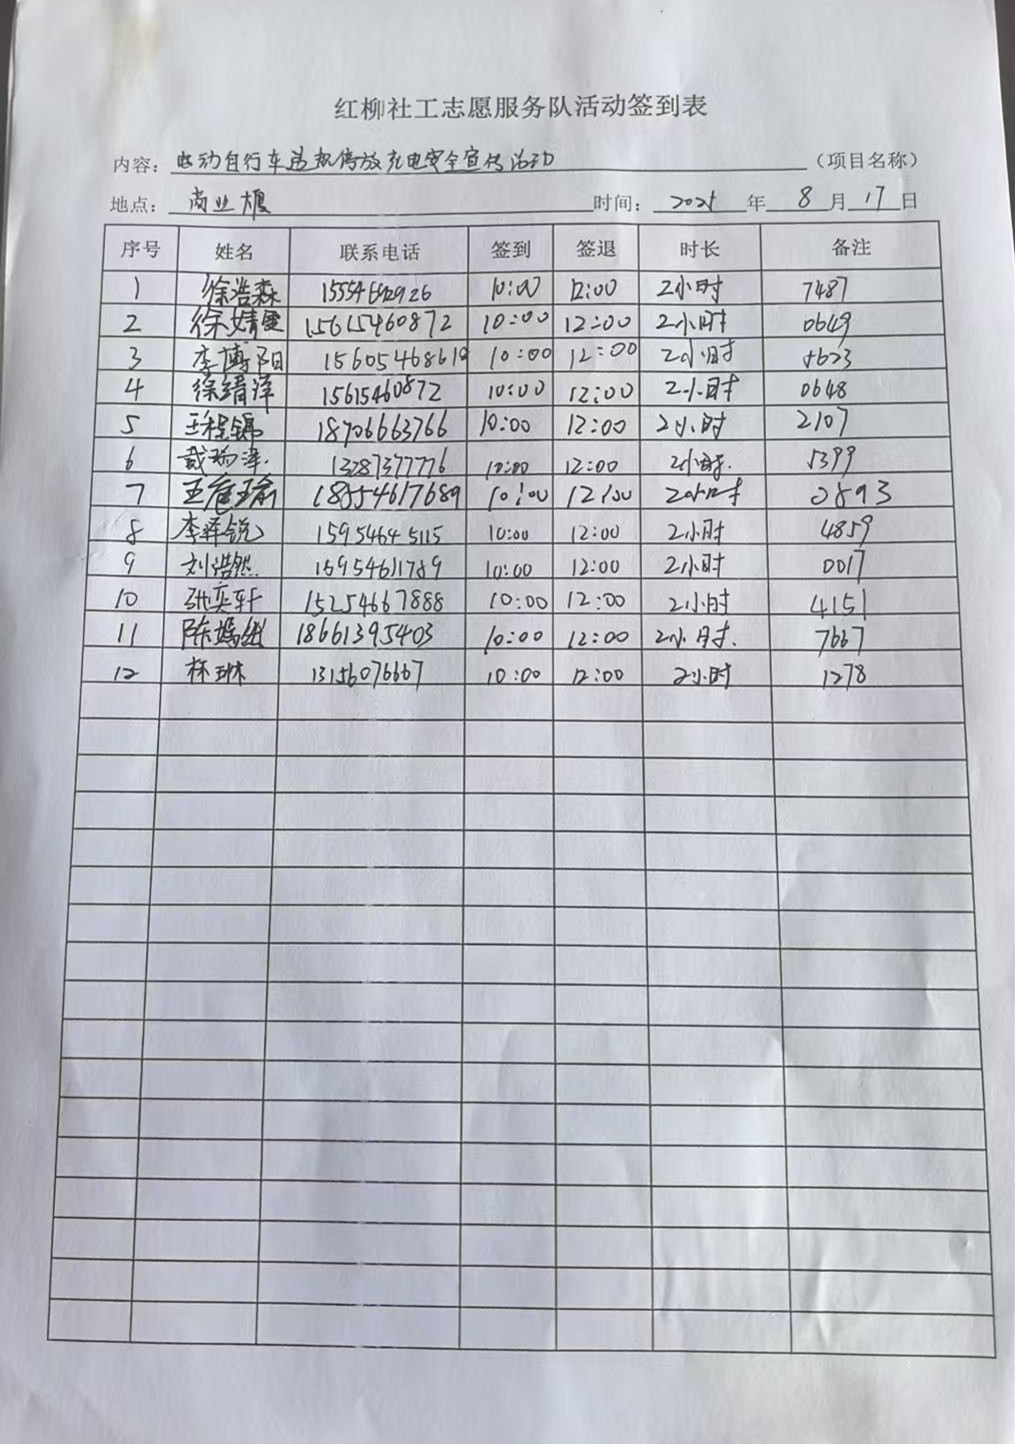 红柳社工志愿服务队活动签到表
内容： 电动自行车违规停放充电安全宣传活动 （项目名称）
地点： 商业大厦 时间： 2025 年 8 月 17 日
序号 姓名 联系电话 签到 签退 时长 备注
1 徐浩森 15554692926 10:00 12:00 2小时 7487
2 徐婧雯 15615460872 10:00 12:00 2小时 0649
3 李博阳 15605468619 10:00 12:00 2小时 5623
4 徐缙泽 15615460872 10:00 12:00 2小时 0648
5 王程锦 18706663766 10:00 12:00 2小时 2107
6 戴瑞泽 13287377776 10:00 12:00 2小时 5399
7 王 瑜 18554617689 10:00 12:00 2小时 0893
8 李泽锐 15954645115 10:00 12:00 2小时 4859
9 刘浩然 15954611789 10:00 12:00 2小时 0017
10 张奕轩 15254667888 10:00 12:00 2小时 4151
11 陈 18661395403 10:00 12:00 2小时 7667
12 林琳 13156076667 10:00 12:00 2小时 1278